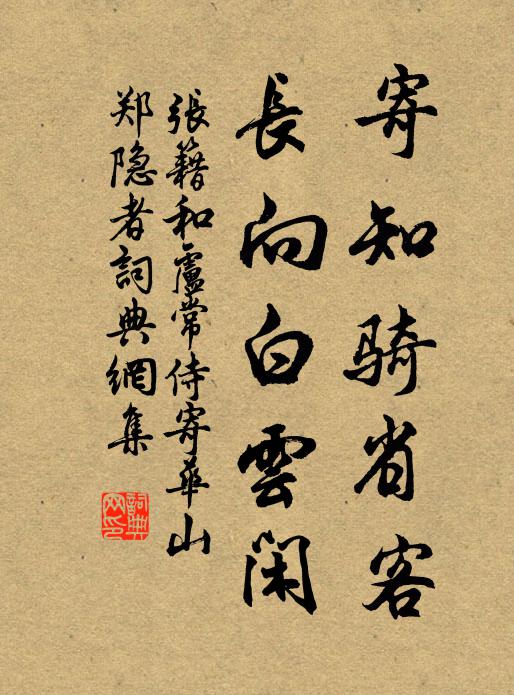 寄知骑省客
長向白雲閑
張籍和盧常侍寄華山
郑隐者詞典網集
詞典网印